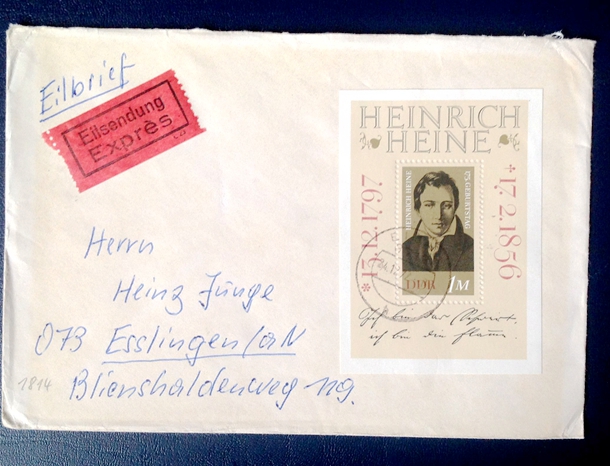 Eilbrief
Eilsendung
Exprès
HEINRICH
HEINE
*13.12.1797
HEINRICH HEINE
175. GEBURTSTAG
DDR 1M
+17.2.1856
Ich bin das Schwert,
ich bin die Flamme.
Herrn
Heinz Junge
073 Esslingen/aN
1814
Blienshaldenweg 119.